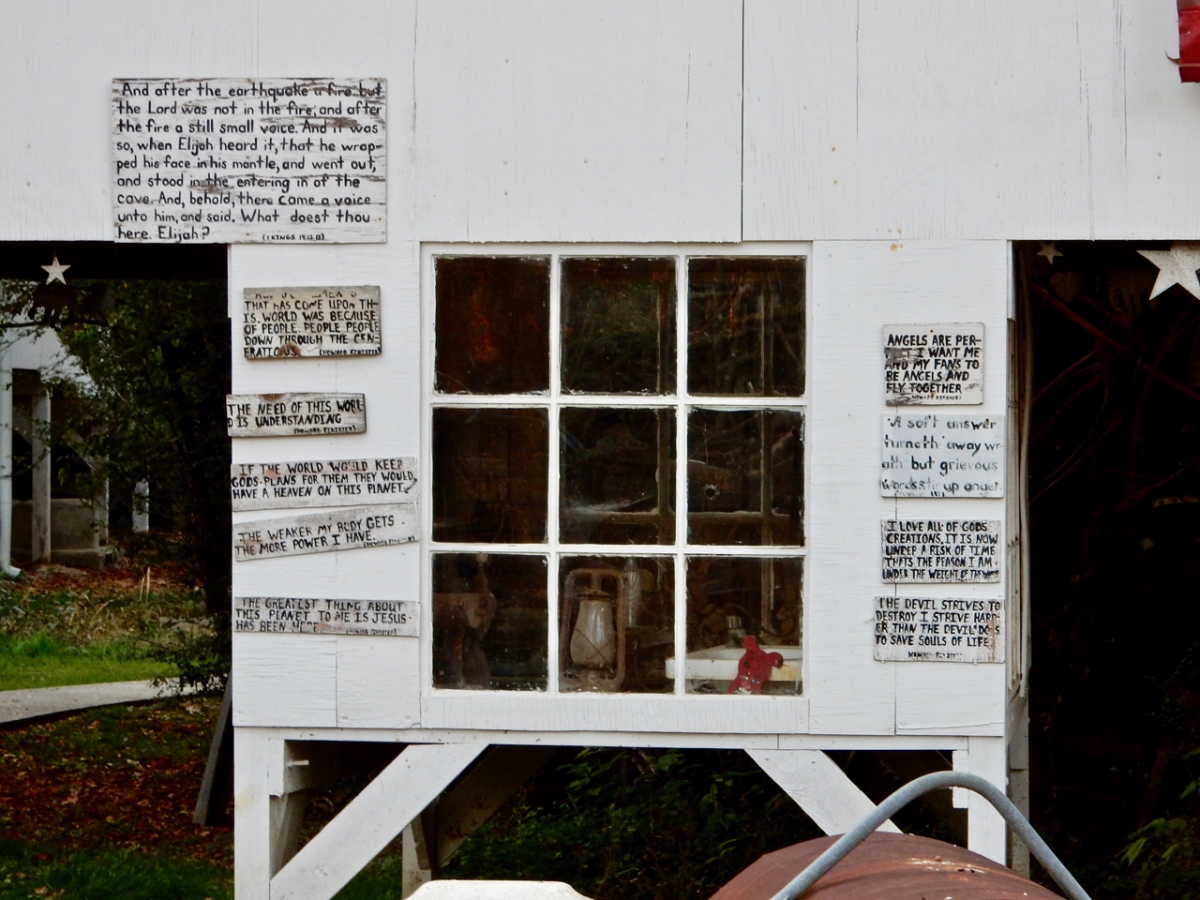 And after the earthquake a fire but
the Lord was not in the fire; and after
the fire a still small voice. And it was
so, when Elijah heard it, that he wrap-
ped his face in his mantle, and went out,
and stood in the entering in of the
cave. And, behold, there came a voice
unto him, and said. What doest thou
here. Elijah?
THAT HAS COME UPON TH-
IS. WORLD WAS BECAUSE
OF PEOPLE. PEOPLE PEOPLE
DOWN THROUGH THE CEN-
ERATIONS (HOWARD FINSTER)
THE NEED OF THIS WORL-
D IS UNDERSTANDING
(HOWARD FINSTER)
IF THE WORLD WOULD KEEP
GODS-PLANS FOR THEM THEY WOULD
HAVE A HEAVEN ON THIS PLANET.
THE WEAKER MY BODY GETS
THE MORE POWER I HAVE.
THE GREATEST THING ABOUT
THIS PLANET TO ME IS JESUS
HAS BEEN
ANGELS ARE PER-
I WANT ME
AND MY FANS TO
BE ANGELS AND
FLY TOGETHER
A soft answer
turneth away wr-
ath but grievous
words stir up anger.
I LOVE ALL OF GODS
CREATIONS, IT IS NOW
UNDER A RISK OF TIME
THATS THE REASON I AM
UNDER THE WEIGHT OF
THE DEVIL STRIVES TO
DESTROY I STRIVE HARD-
ER THAN THE DEVIL DOES
TO SAVE SOULS OF LIFE.